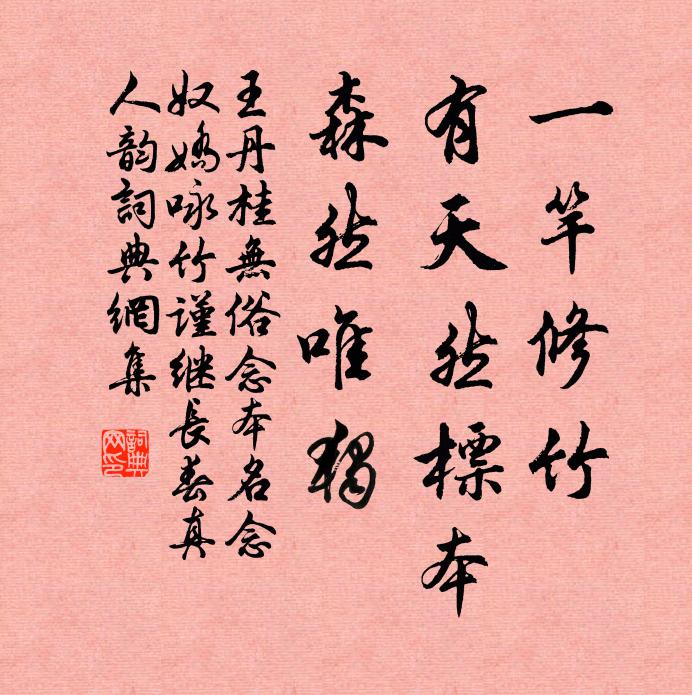 一竿修竹
有天然標本
森然唯獨
王丹桂無俗念本名念
奴嬌咏竹謹继長春真
人韵詞典網集
詞典
网印